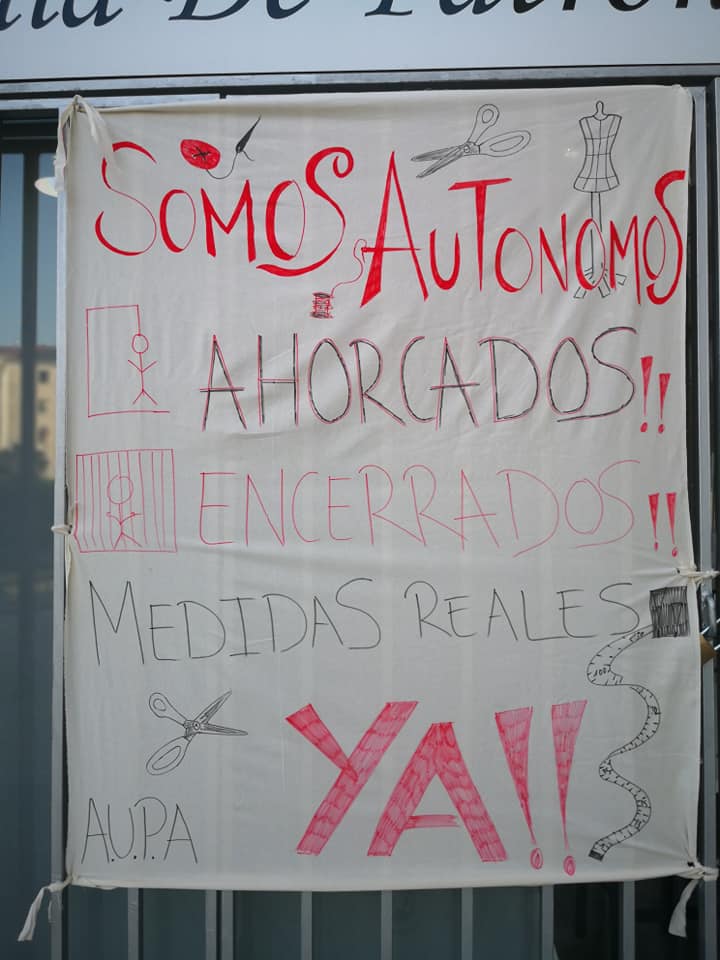 De Patron
SOMOS AUTONOMOS
AHORCADOS!!
ENCERRADOS!!
MEDIDAS REALES
YA!!
A.U.P.A